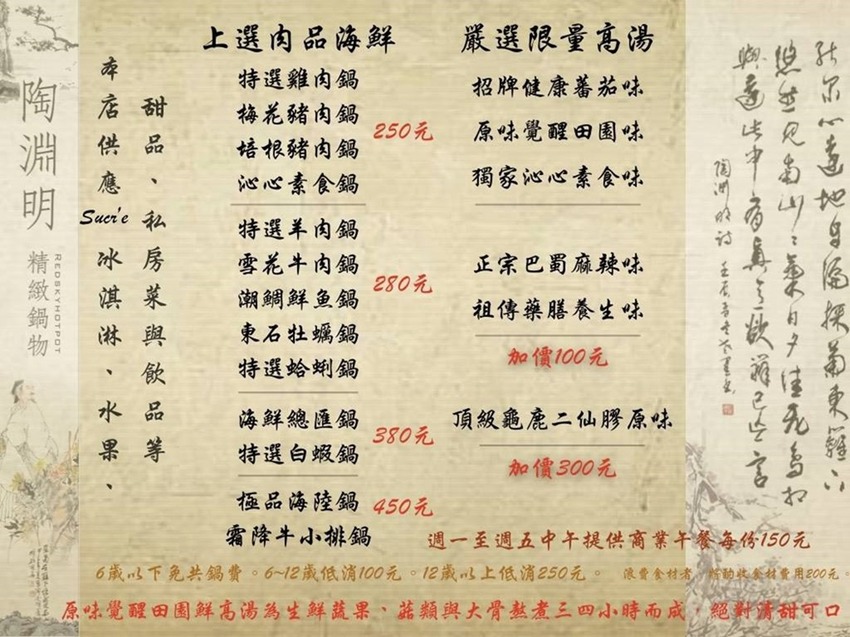 陶淵明
精緻鍋物
REDSKYHOTPOT
本店供應Sucr'e冰淇淋、水果、
甜品、私房菜與飲品等
上選肉品海鮮
特選雞肉鍋
梅花豬肉鍋
培根豬肉鍋
沁心素食鍋
250元
特選羊肉鍋
雪花牛肉鍋
潮鯛鮮魚鍋
東石牡蠣鍋
特選蛤蜊鍋
280元
海鮮總匯鍋
特選白蝦鍋
380元
極品海陸鍋
霜降牛小排鍋
450元
嚴選限量高湯
招牌健康蕃茄味
原味覺醒田園味
獨家沁心素食味
正宗巴蜀麻辣味
祖傳藥膳養生味
加價100元
頂級龜鹿二仙膠原味
加價300元
週一至週五中午提供商業午餐每份150元
6歲以下免共鍋費。6~12歲低消100元。12歲以上低消250元。
浪費食材者，酌收食材費用200元。
原味覺醒田園鮮高湯為生鮮蔬果、菇類與大骨熬煮三四小時而成，絕對清甜可口
陶淵明詩